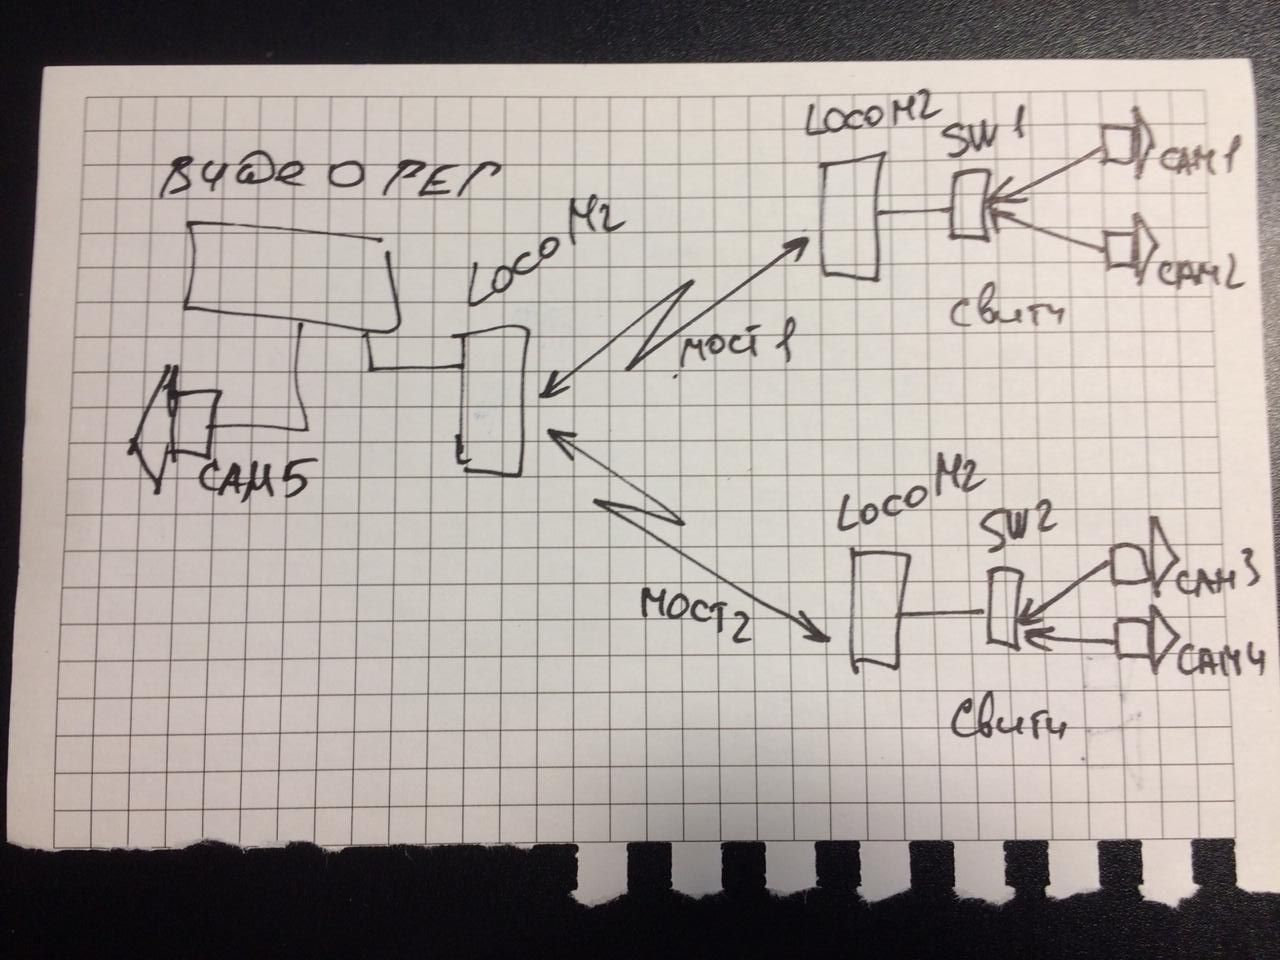 ВИДЕО РЕГ
LOCO M2
МОСТ 1
LOCO M2
SW 1
CAM1
CAM2
Свитч
CAM5
МОСТ2
LOCO M2
SW2
CAM3
CAM4
Свитч